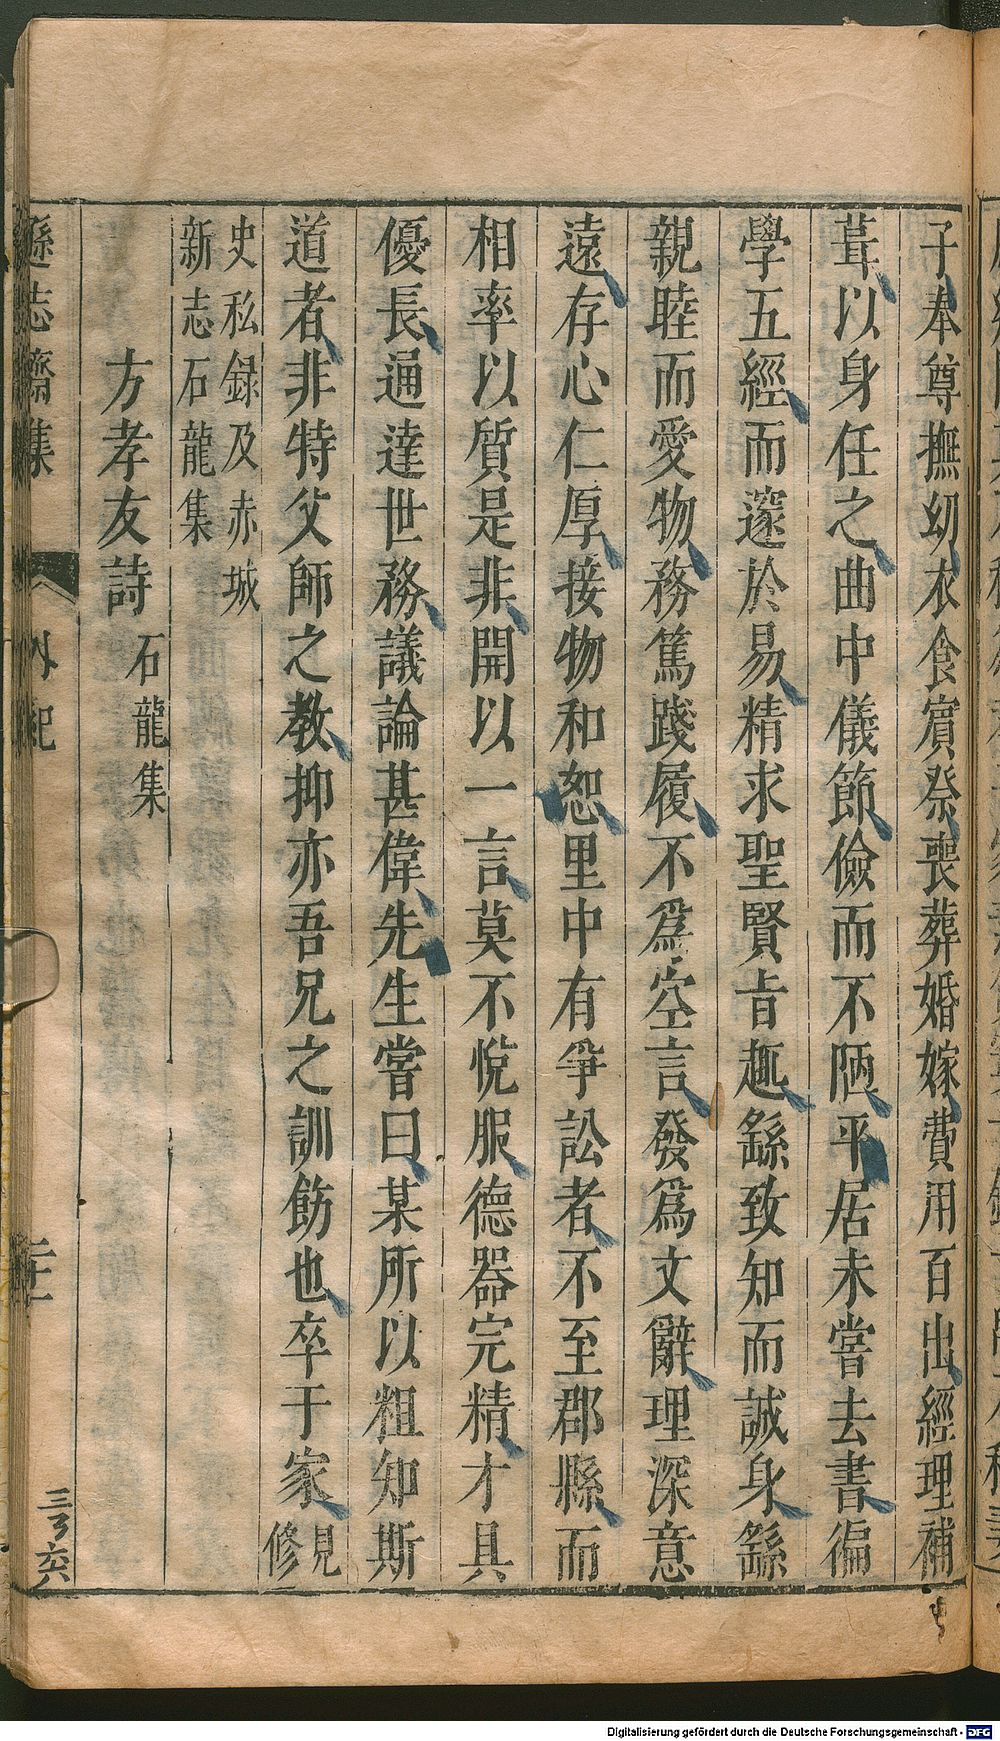 子奉尊撫幼衣食賓祭喪葬婚嫁費用百出經理補
葺以身任之曲中儀節儉而不陋平居未嘗去書徧
學五經而邃於易精求聖賢㫖趣繇致知而誠身繇
親睦而愛物務篤踐履不爲空言發爲文辭理深意
遠存心仁厚接物和恕里中有爭訟者不至郡縣而
相率以質是非開以一言莫不悅服德器完精才具
優長通達世務議論甚偉先生嘗曰某所以粗知斯
道者非特父師之教抑亦吾兄之訓飭也卒于家見修
史私録及赤城
新志石龍集
方孝友詩石龍集
遜志齋集 外紀
Digitalisierung gefördert durch die Deutsche Forschungsgemeinschaft - DFG